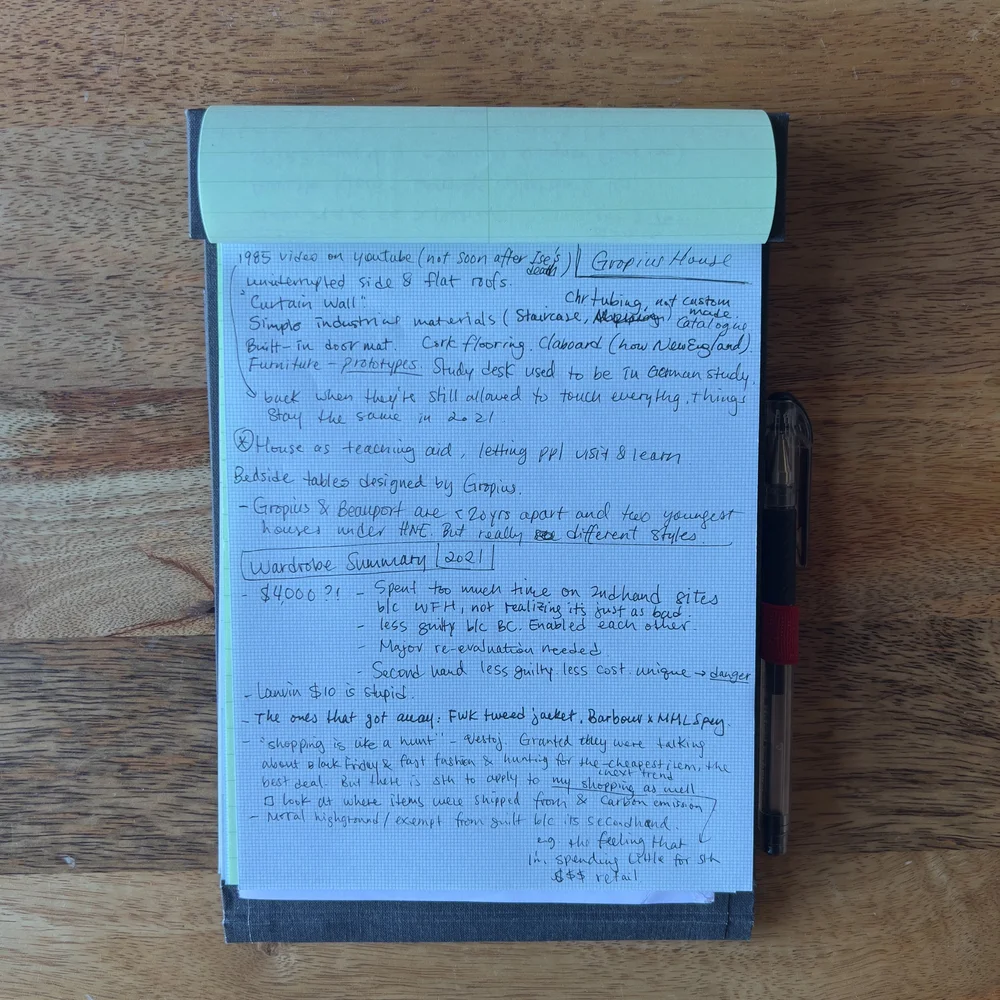 1985 video on youtube (not soon after Ise's death)
Gropius House
uninterrupted side & flat roofs.
"Curtain Wall".
Chr tubing, not custom made.
Simple industrial materials (Staircase, ) Catalogue
Built-in door mat. Cork flooring. Claboard (how New England).
Furniture - prototypes. Study desk used to be in German study.
back when they're still allowed to touch everythg, things
stay the same in 2021
House as teaching aid, letting ppl visit & learn
Bedside tables designed by Gropius.
- Gropius & Beauport are < 20yrs apart and two youngest
houses under HNE. But really different styles.
Wardrobe Summary 2021
- $4,000?! - Spent too much time on 2ndhand sites
b/c WFH, not realizing it's just as bad
- less guilty b/c BC. Enabled each other.
- Major re-evaluation needed
- Second hand less guilty. less cost. unique → danger
- Lanvin $10 is stupid.
- The ones that got away: FWK tweed jacket, Barbour x MHL Spey.
- "shopping is like a hunt" - Vestoj. Granted they were talking
about Black Friday & fast fashion & hunting for the cheapest item, the
next trend
best deal. But there is sth to apply to my shopping as well
□ look at where items were shipped from & Carbon emission
- Moral highground / exempt from guilt b/c it's secondhand.
e.g. the feeling that
I'm spending little for sth
$$$ retail